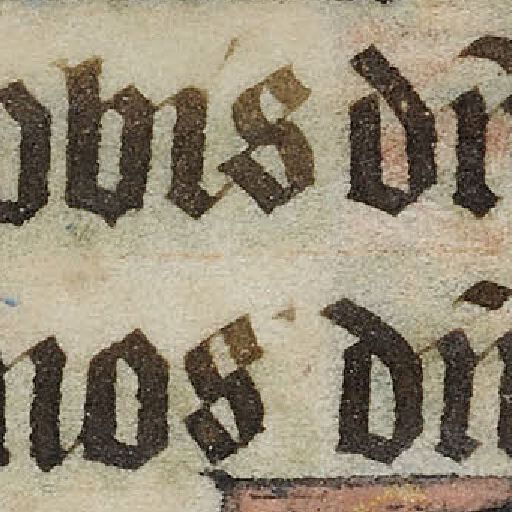 obis dr̄
nos dn̄